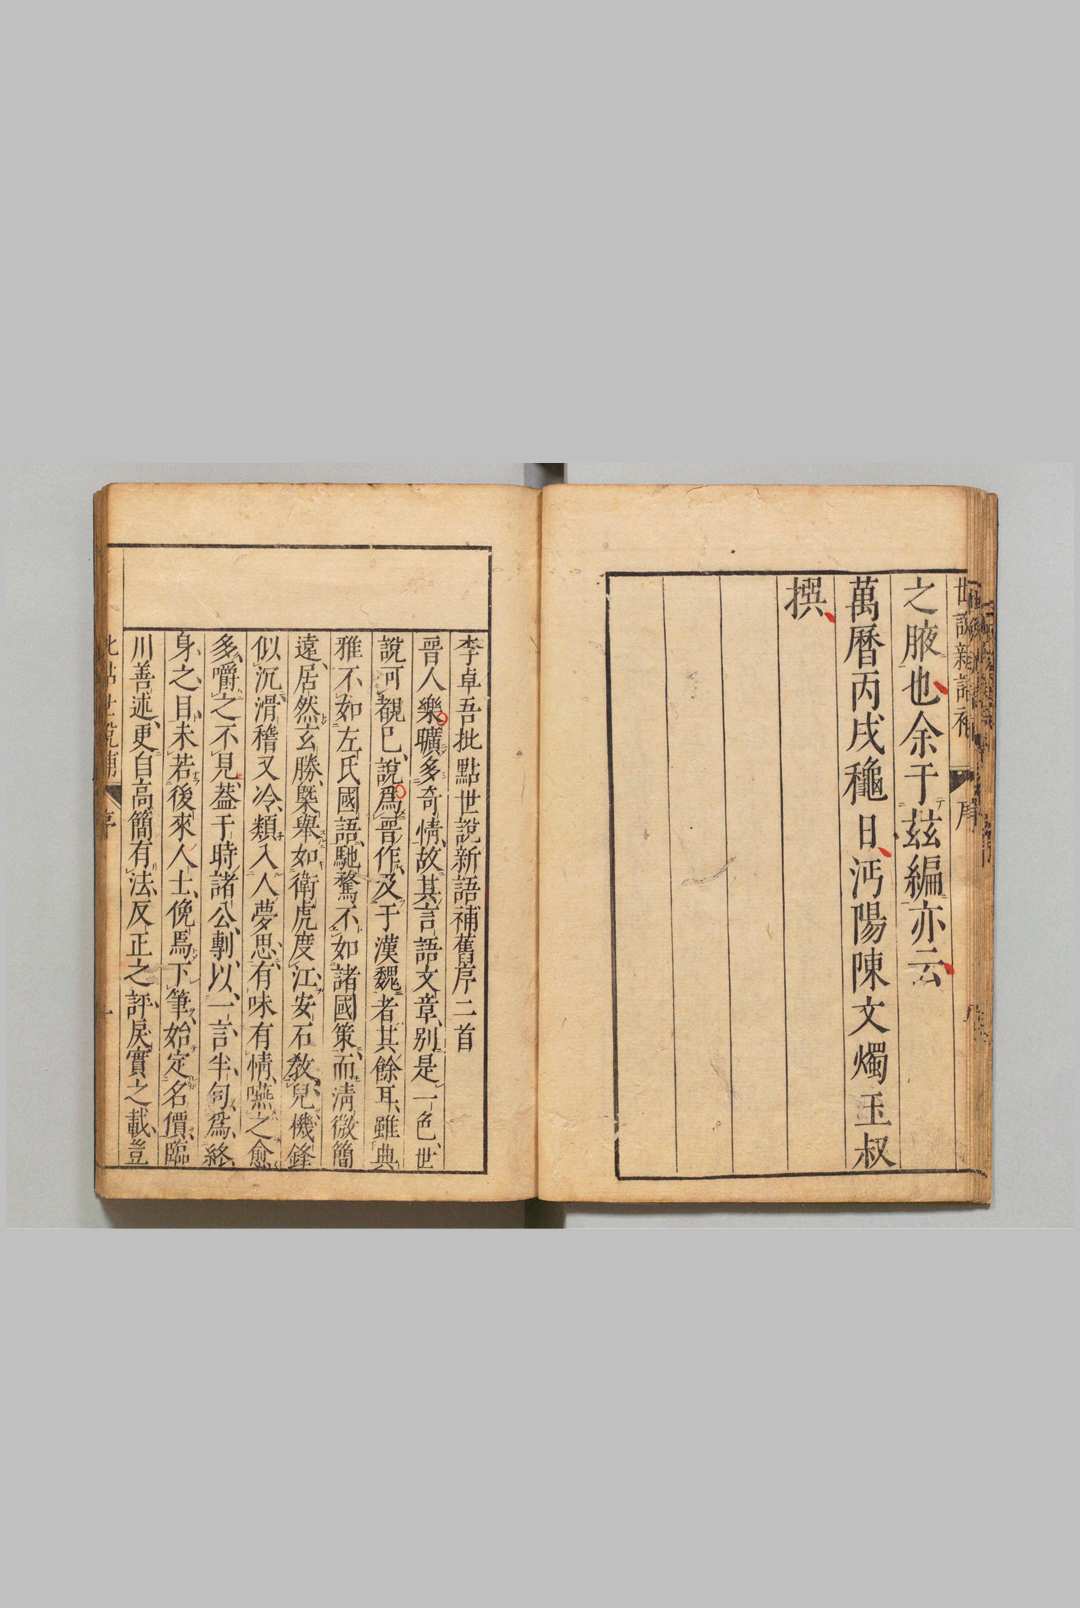 世說新語補
序
之腋也余于茲編亦云
萬曆丙戌龝日沔陽陳文燭玉叔
撰
李卓吾批點世說新語補舊序二首
晉人樂曠多奇情故其言語文章別是一色世
說可覩已說爲晉作及于漢魏者其餘耳雖典
雅不如左氏國語馳騖不如諸國策而淸微簡
遠居然玄勝槩舉如衛虎度江安石教兒機鋒
似沉滑稽又冷類入人夢思有味有情嚥之愈
多嚼之不見葢于時諸公剸以一言半句爲終
身之目未若後來人士俛焉下筆始定名價臨
川善述更自高簡有法反正之評戾實之載豈
批點世說補
序
一